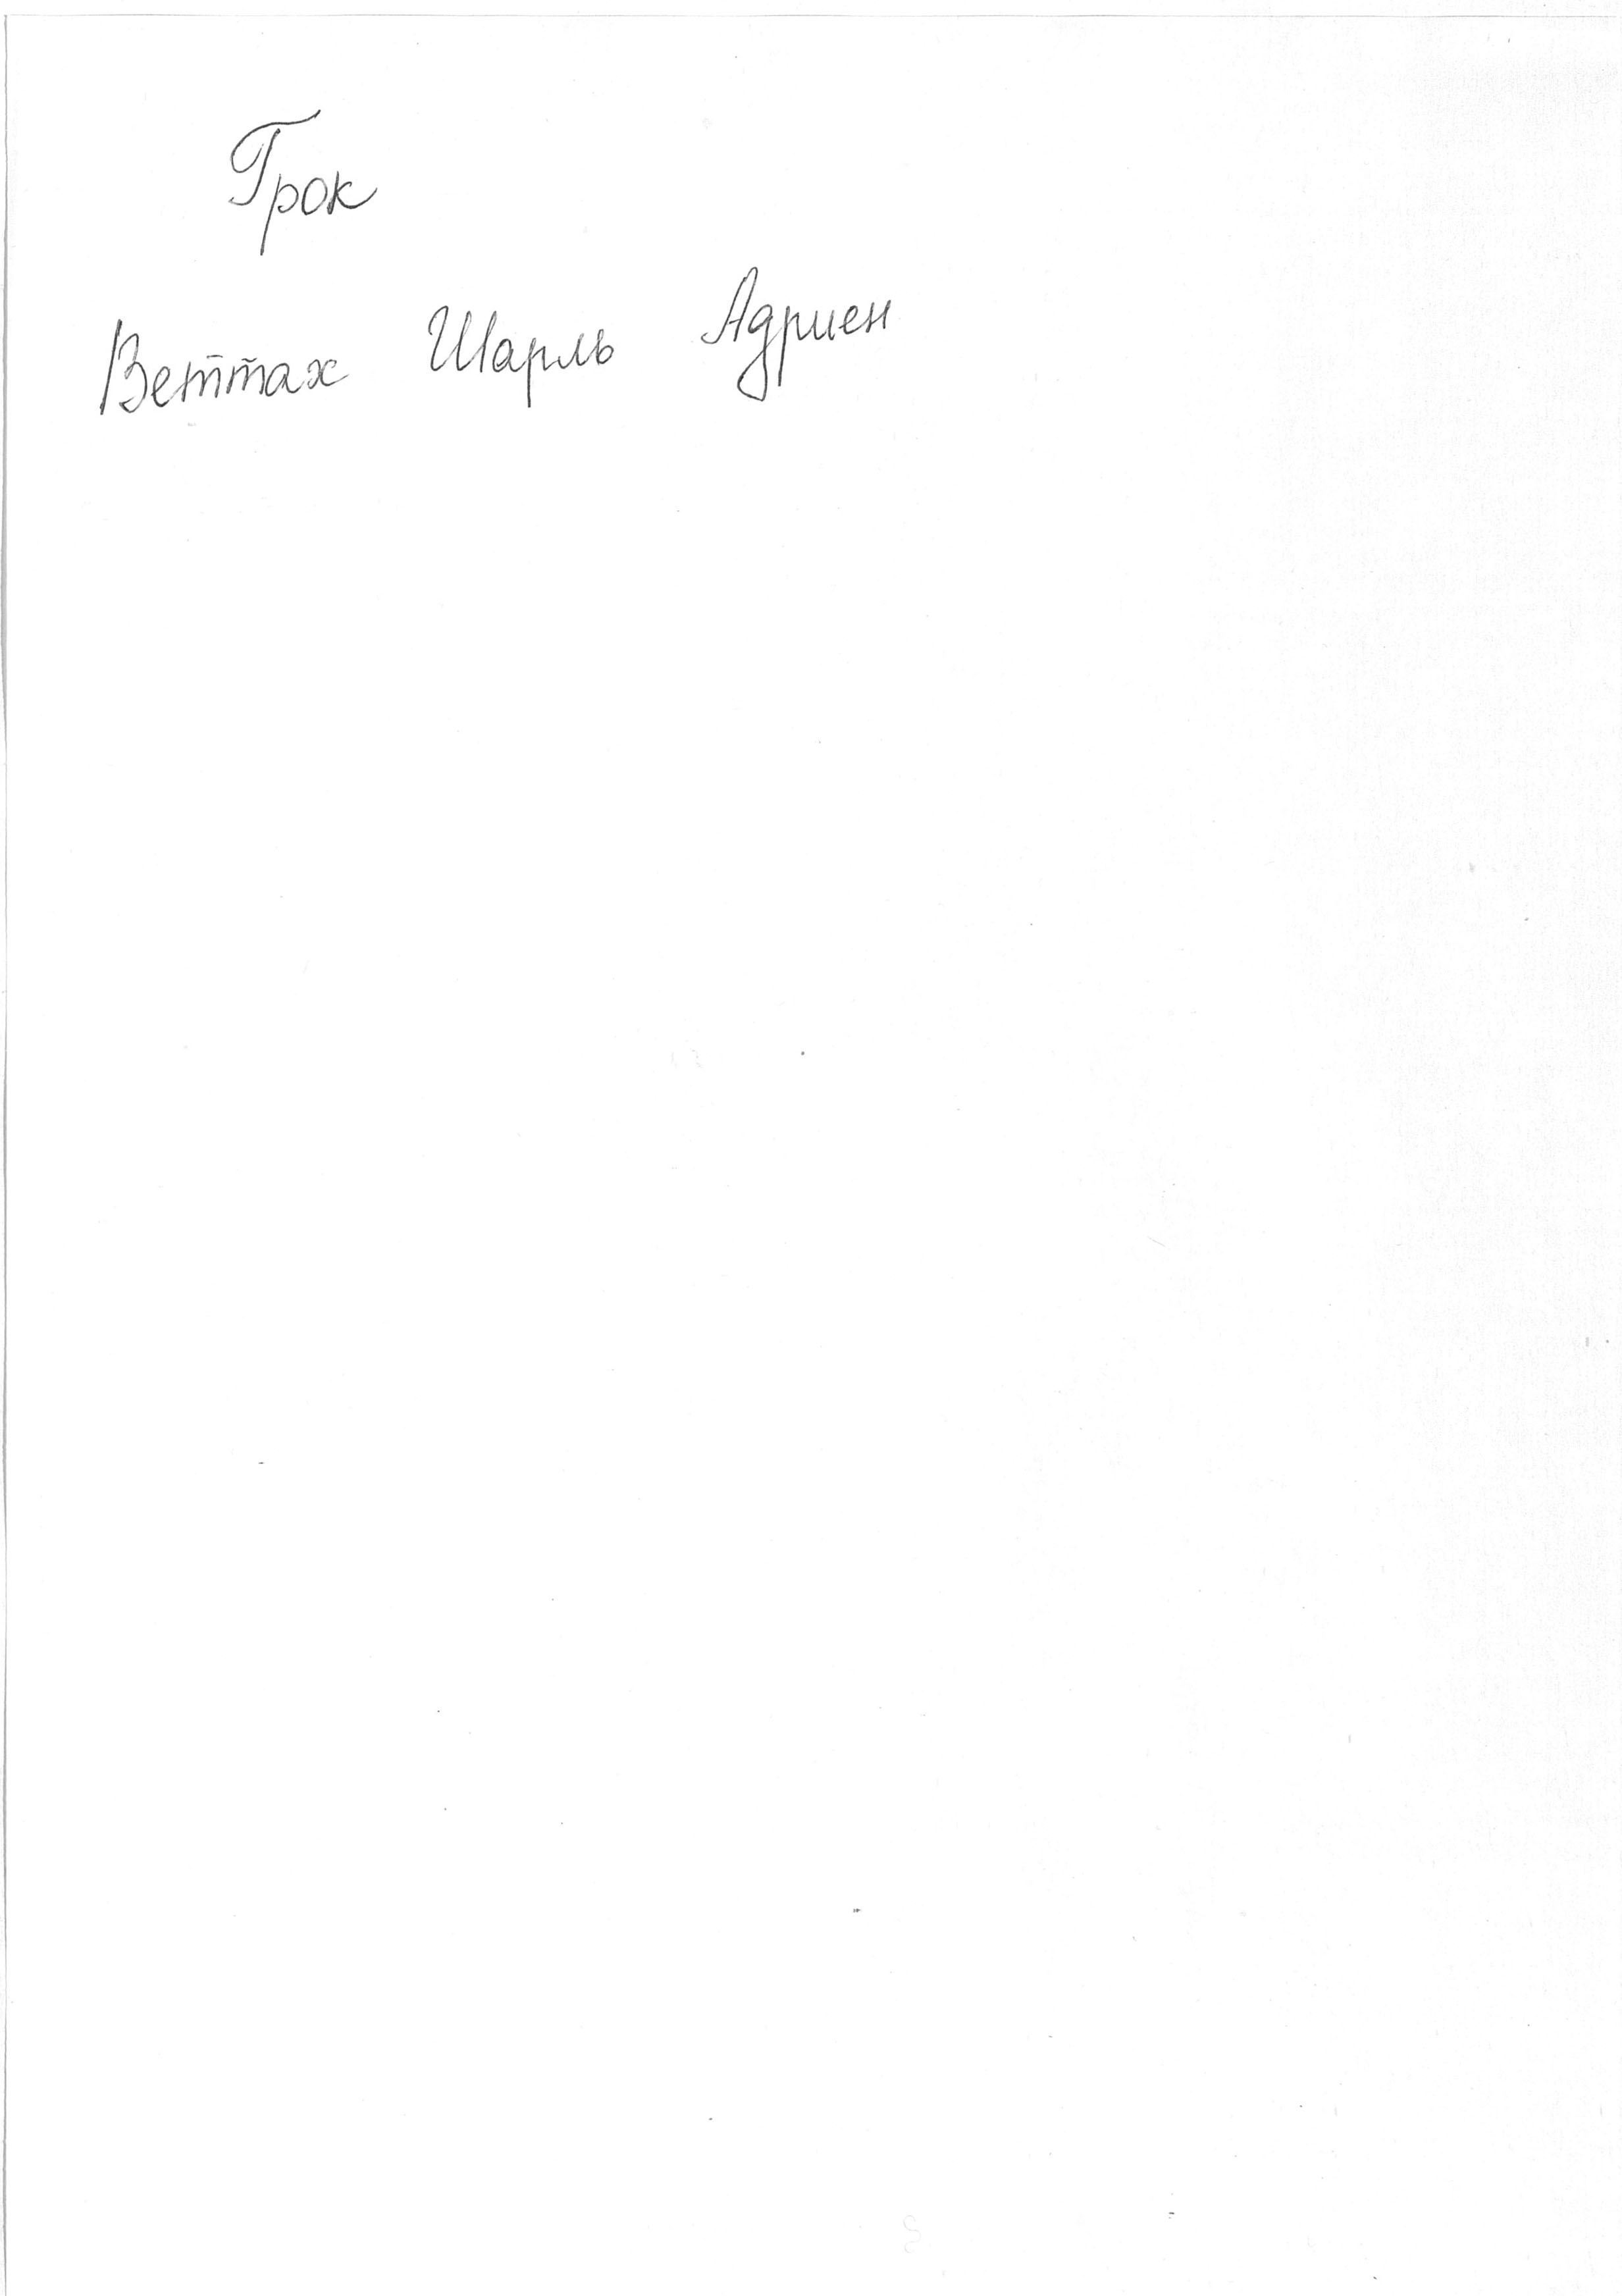 Грок
Веттах Шарль Адриен